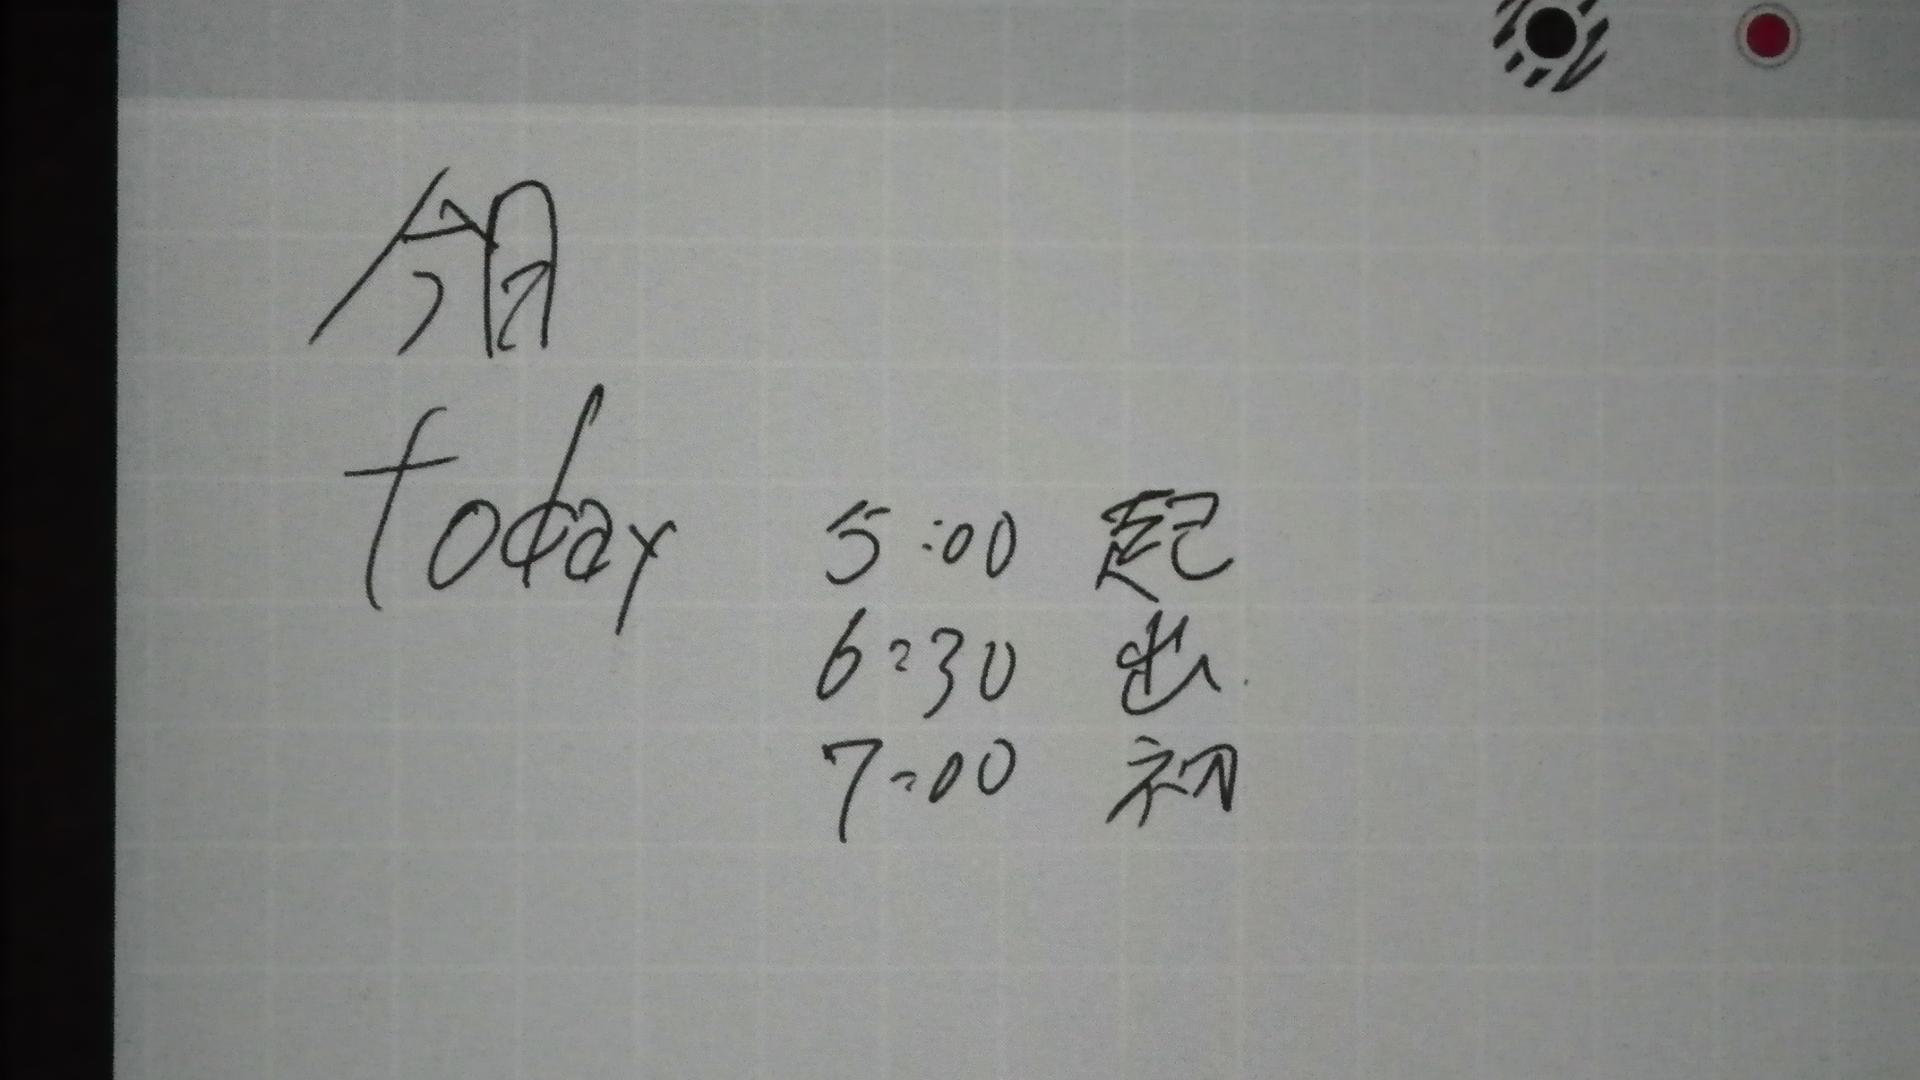 今日
today
5:00 起
6:30 出
7:00 初